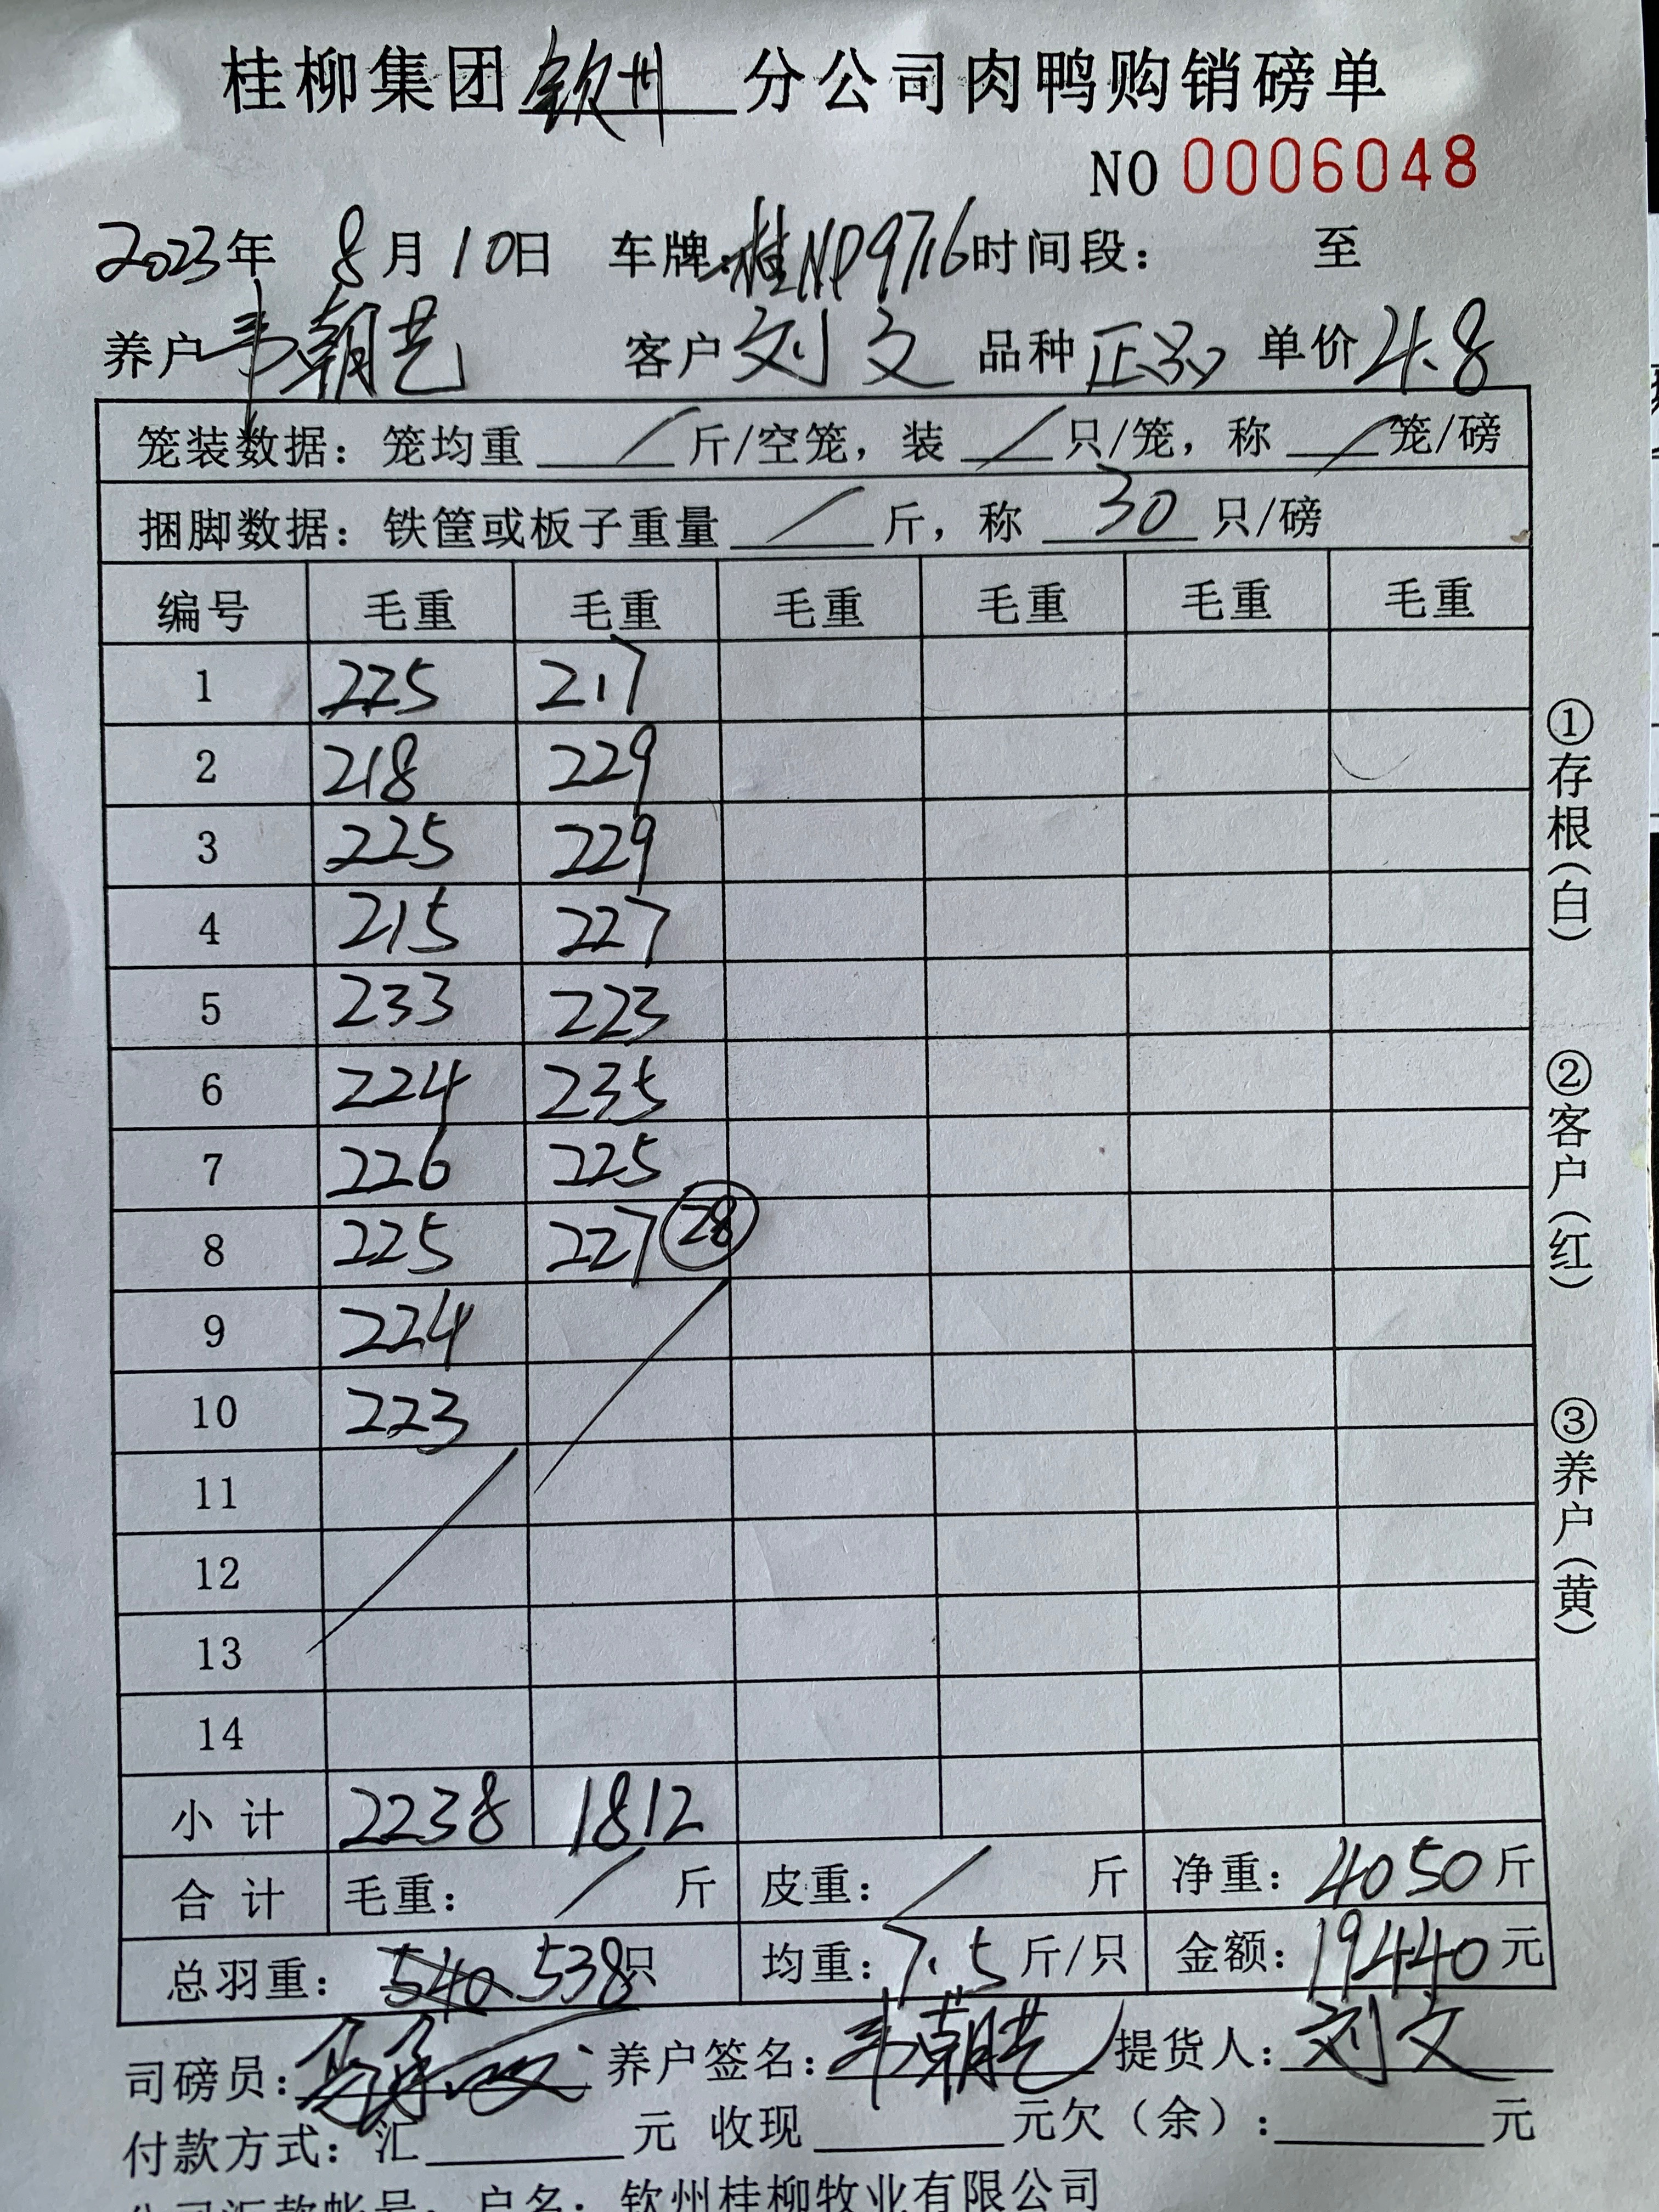 桂柳集团钦州分公司肉鸭购销磅单
NO 0006048
2023年 8月10日 车牌:桂ND9716时间段: 至
养户韦朝艺 客户刘文 品种正品 单价4.8
笼装数据:笼均重 / 斤/空笼,装 / 只/笼,称 / 笼/磅
捆脚数据:铁筐或板子重量 / 斤,称 30 只/磅
编号 毛重 毛重 毛重 毛重 毛重 毛重
1 225 217
2 218 229
3 225 229
4 215 227
5 233 223
6 224 235
7 226 225
8 225 227 28
9 224
10 223
11
12
13
14
小计 2238 1812
合计 毛重: / 斤 皮重: / 斤 净重:4050斤
总羽重:540 538只 均重:7.5斤/只 金额:19440元
司磅员: 养户签名:韦朝艺 提货人:刘文
付款方式:汇 元 收现 元欠(余): 元
公司汇款帐号:户名:钦州桂柳牧业有限公司
①存根(白)
②客户(红)
③养户(黄)